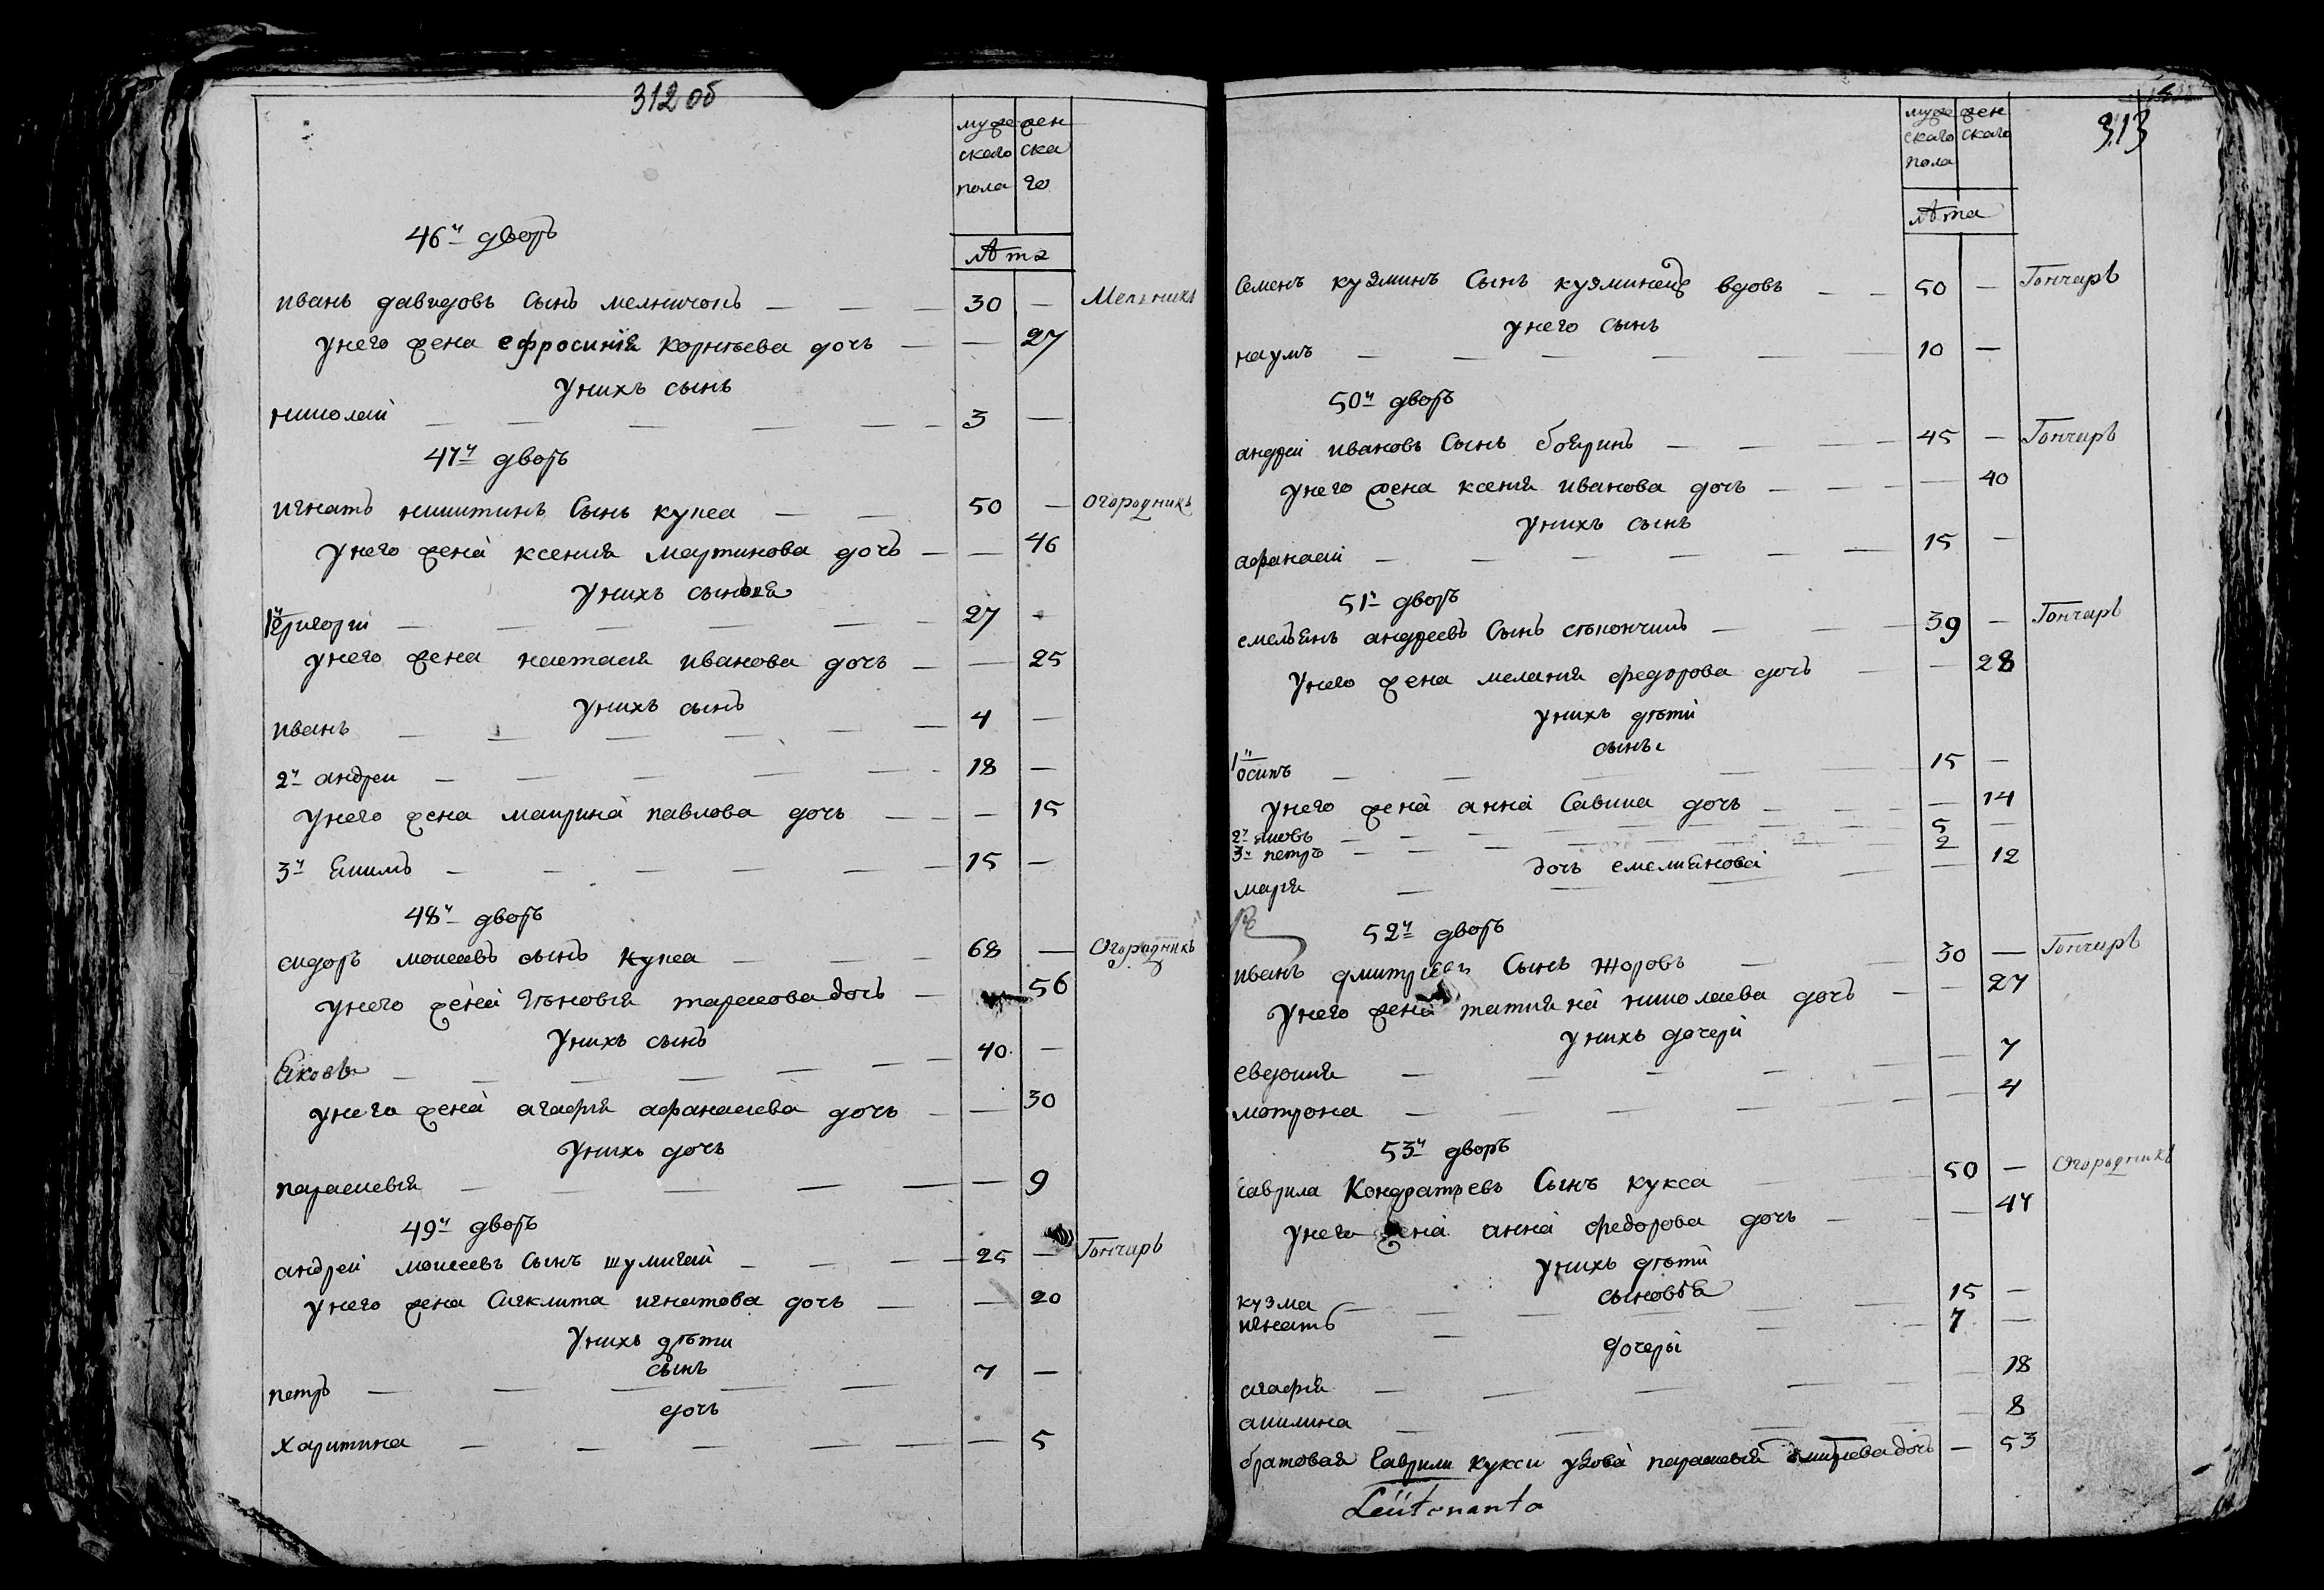 312 об
муже жен
скаго ска
пола го
лѣта
46й дворъ
иванъ давидовъ сынъ мелничонъ — — — 30 — Мельникъ
унего жена ефросиния корнѣева дочь — — 27
унихъ сынъ
николай — — — — — 3 —
47й дворъ
игнатъ никитинъ сынъ кукса — — 50 — Огородникъ
унего жена ксения мартинова дочь — — 46
унихъ сыновя
1й григорий — — — — — 27 —
унего жена настасия иванова дочь — — 25
унихъ сынъ
иванъ — — — — — 4 —
2й андреи — — — — — 18 —
унего жена маирина павлова дочь — — — 15
3й екимъ — — — — — 15 —
48й дворъ
сидоръ моисеевъ сынъ кукса — — — 68 — Огородникъ
унего жена тарасова дочь — 56
унихъ сынъ
яковъ — — — — — — 40 —
унего жена агафия афанасиева дочь — — 30
унихъ дочь
параскевия — — — — — — 9
49й дворъ
андрей моисеевъ сынъ шумигай — — — 25 — Гончаръ
унего жена сигклита игнатова дочь — — 20
унихъ дѣти
сынъ
петръ — — — — — 7 —
дочь
харитина — — — — — — 5
313
муже жен
скаго скаго
пола
лѣта
семенъ кузминъ сынъ кузминецъ вдовъ — — 50 — Гончаръ
унего сынъ
наумъ — — — — — 10 —
50й дворъ
андрей ивановъ сынъ бояринъ — — — 45 — Гончаръ
унего жена ксения иванова дочь — — — — 40
унихъ сынъ
афанасий — — — — — — 15 —
51й дворъ
емельянъ андреевъ сынъ — — 39 — Гончаръ
унего жена мелания федорова дочь — — 28
унихъ дѣти
сыны
1й осипъ — — — — — 15 —
унего жена анна савина дочь — — — 14
2й яковъ — — — — — 5 —
3й петръ — — — — — 2
дочь емелиянова
мария — — — — — — 12
52й дворъ
иванъ дмитриевъ сынъ жоровъ — — 30 — Гончаръ
унего жена татияна николаева дочь — — 27
унихъ дочери
евдокия — — — — — — 7
мотрона — — — — — — 4
53й дворъ
гаврила Кондратьевъ сынъ кукса — — 50 — Огородникъ
унего жена анна федорова дочь — — — 47
унихъ дѣти
сыновъя
кузма — — — — — 15 —
игнатъ — — — 7 —
дочери
агафия — — — — — — 18
акилина — — — — 8
братовая гаврили кукси удова параскевия дмитриева дочь — 53
Leütenanta